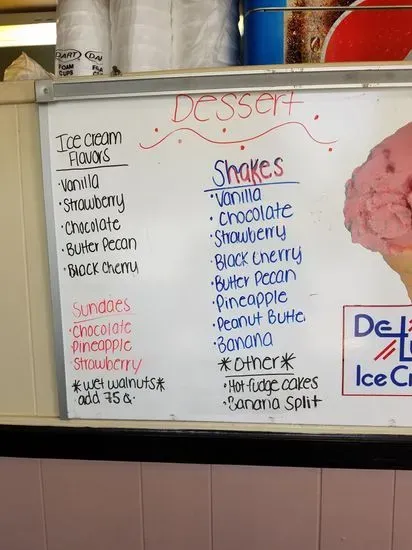 DART
FOAM
CUPS
DAR
FOA
CUPS
Dessert
Ice Cream
Flavors
·Vanilla
·Strawberry
·Chocolate
·Butter Pecan
·Black Cherry
Sundaes
·Chocolate
·Pineapple
·Strawberry
*wet walnuts*
add 75¢.
Shakes
·Vanilla
·Chocolate
·Strawberry
·Black Cherry
·Butter Pecan
·Pineapple
·Peanut Butter
·Banana
*Other*
·Hot fudge cakes
·Banana Split
Ice Cr